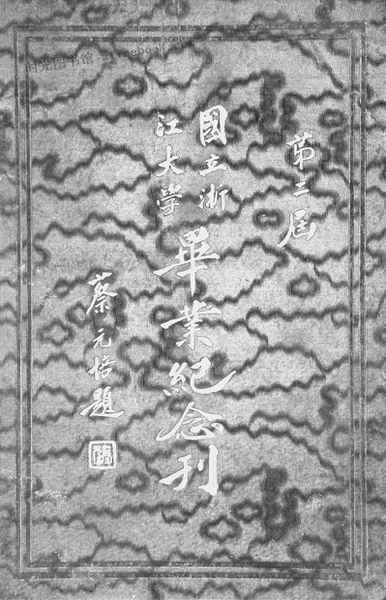 第三屆
國立浙
江大学
畢業紀念刊
蔡元培題